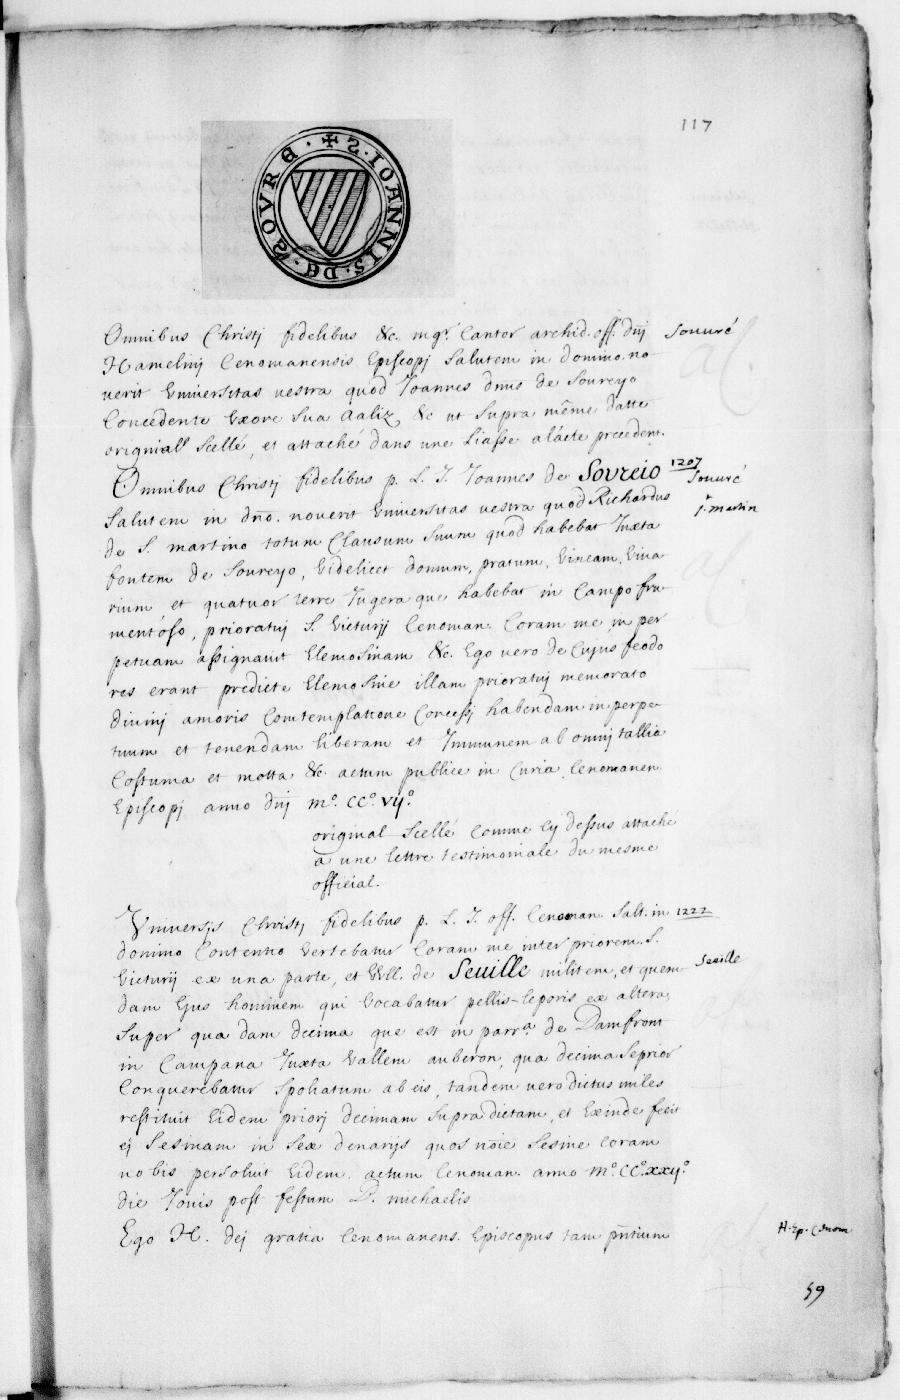 117
✠ S · IOANNIS · DE · SOVRE ·
Omnibus Christj fidelibus &c. mgr. Cantor archid. off. dnj
Souuré
Hamelinj Cenomanensis Episcopj Salutem in domino. no
uerit Vniuersitas uestra quod Joannes dnus de Soureyo
Concedente Vxore Sua Aaliz &c ut Supra même datte
original Scellé, et attaché dans une Liasse a lácte precedent.
1207
Omnibus Christj fidelibus p. L. J. Joannes de Sovreio
Souuré
Salutem in dno. nouerit Vniuersitas uestra quod Richardus
s. martin
de S. martino totum Clausum Suum quod habebat Juxta
fontem de Soureyo, Videlicet domum, pratum, Vineam, Viua
rium, et quatuor terre Jugera que habebat in Campo fru
mentoso, prioratuj S. Victurij Cenoman. Coram me in per
petuam assignauit Elemosinam &c. Ego uero de Cujus feodo
res erant predicte Elemosine illam prioratuj memorato
diuinj amoris Comtemplatione Concessj habendam in perpe
tuum et tenendam liberam et Jmmunem ab omnj tallia
Costuma et motta &c. actum publice in Curia Cenomanen.
Episcopj anno dnj mo. CCo. vijo.
original Scellé Comme Cy dessus attaché
a une lettre testimoniale du mesme
official.
Vniuersis Christj fidelibus p. L. J. off. Cenoman. Salt. in
1222
domino Contentio Vertebatur Coram me inter priorem S.
Victurij ex una parte, et Will. de Seuille militem, et quem
Seuille
dam Ejus hominem qui Vocabatur pellis-leporis ex altera,
Super qua dam decima que est in parra. de Damfront
in Campana Juxta Vallem auberon, qua decima Se prior
Conquerebatur Spoliatum ab eis, tandem uero dictus miles
restituit Eidem priorj decimam Supradictam, et Exinde fecit
ej Sesinam in Sex denarijs quos noie Sesine Coram
nobis persoluit Eidem. actum Cenoman. anno mo. CCo. xxijo.
die Jouis post festum D. michaelis
Ego H. dej gratia Cenomanens. Episcopus tam pntium
H. Ep. Cenom
59